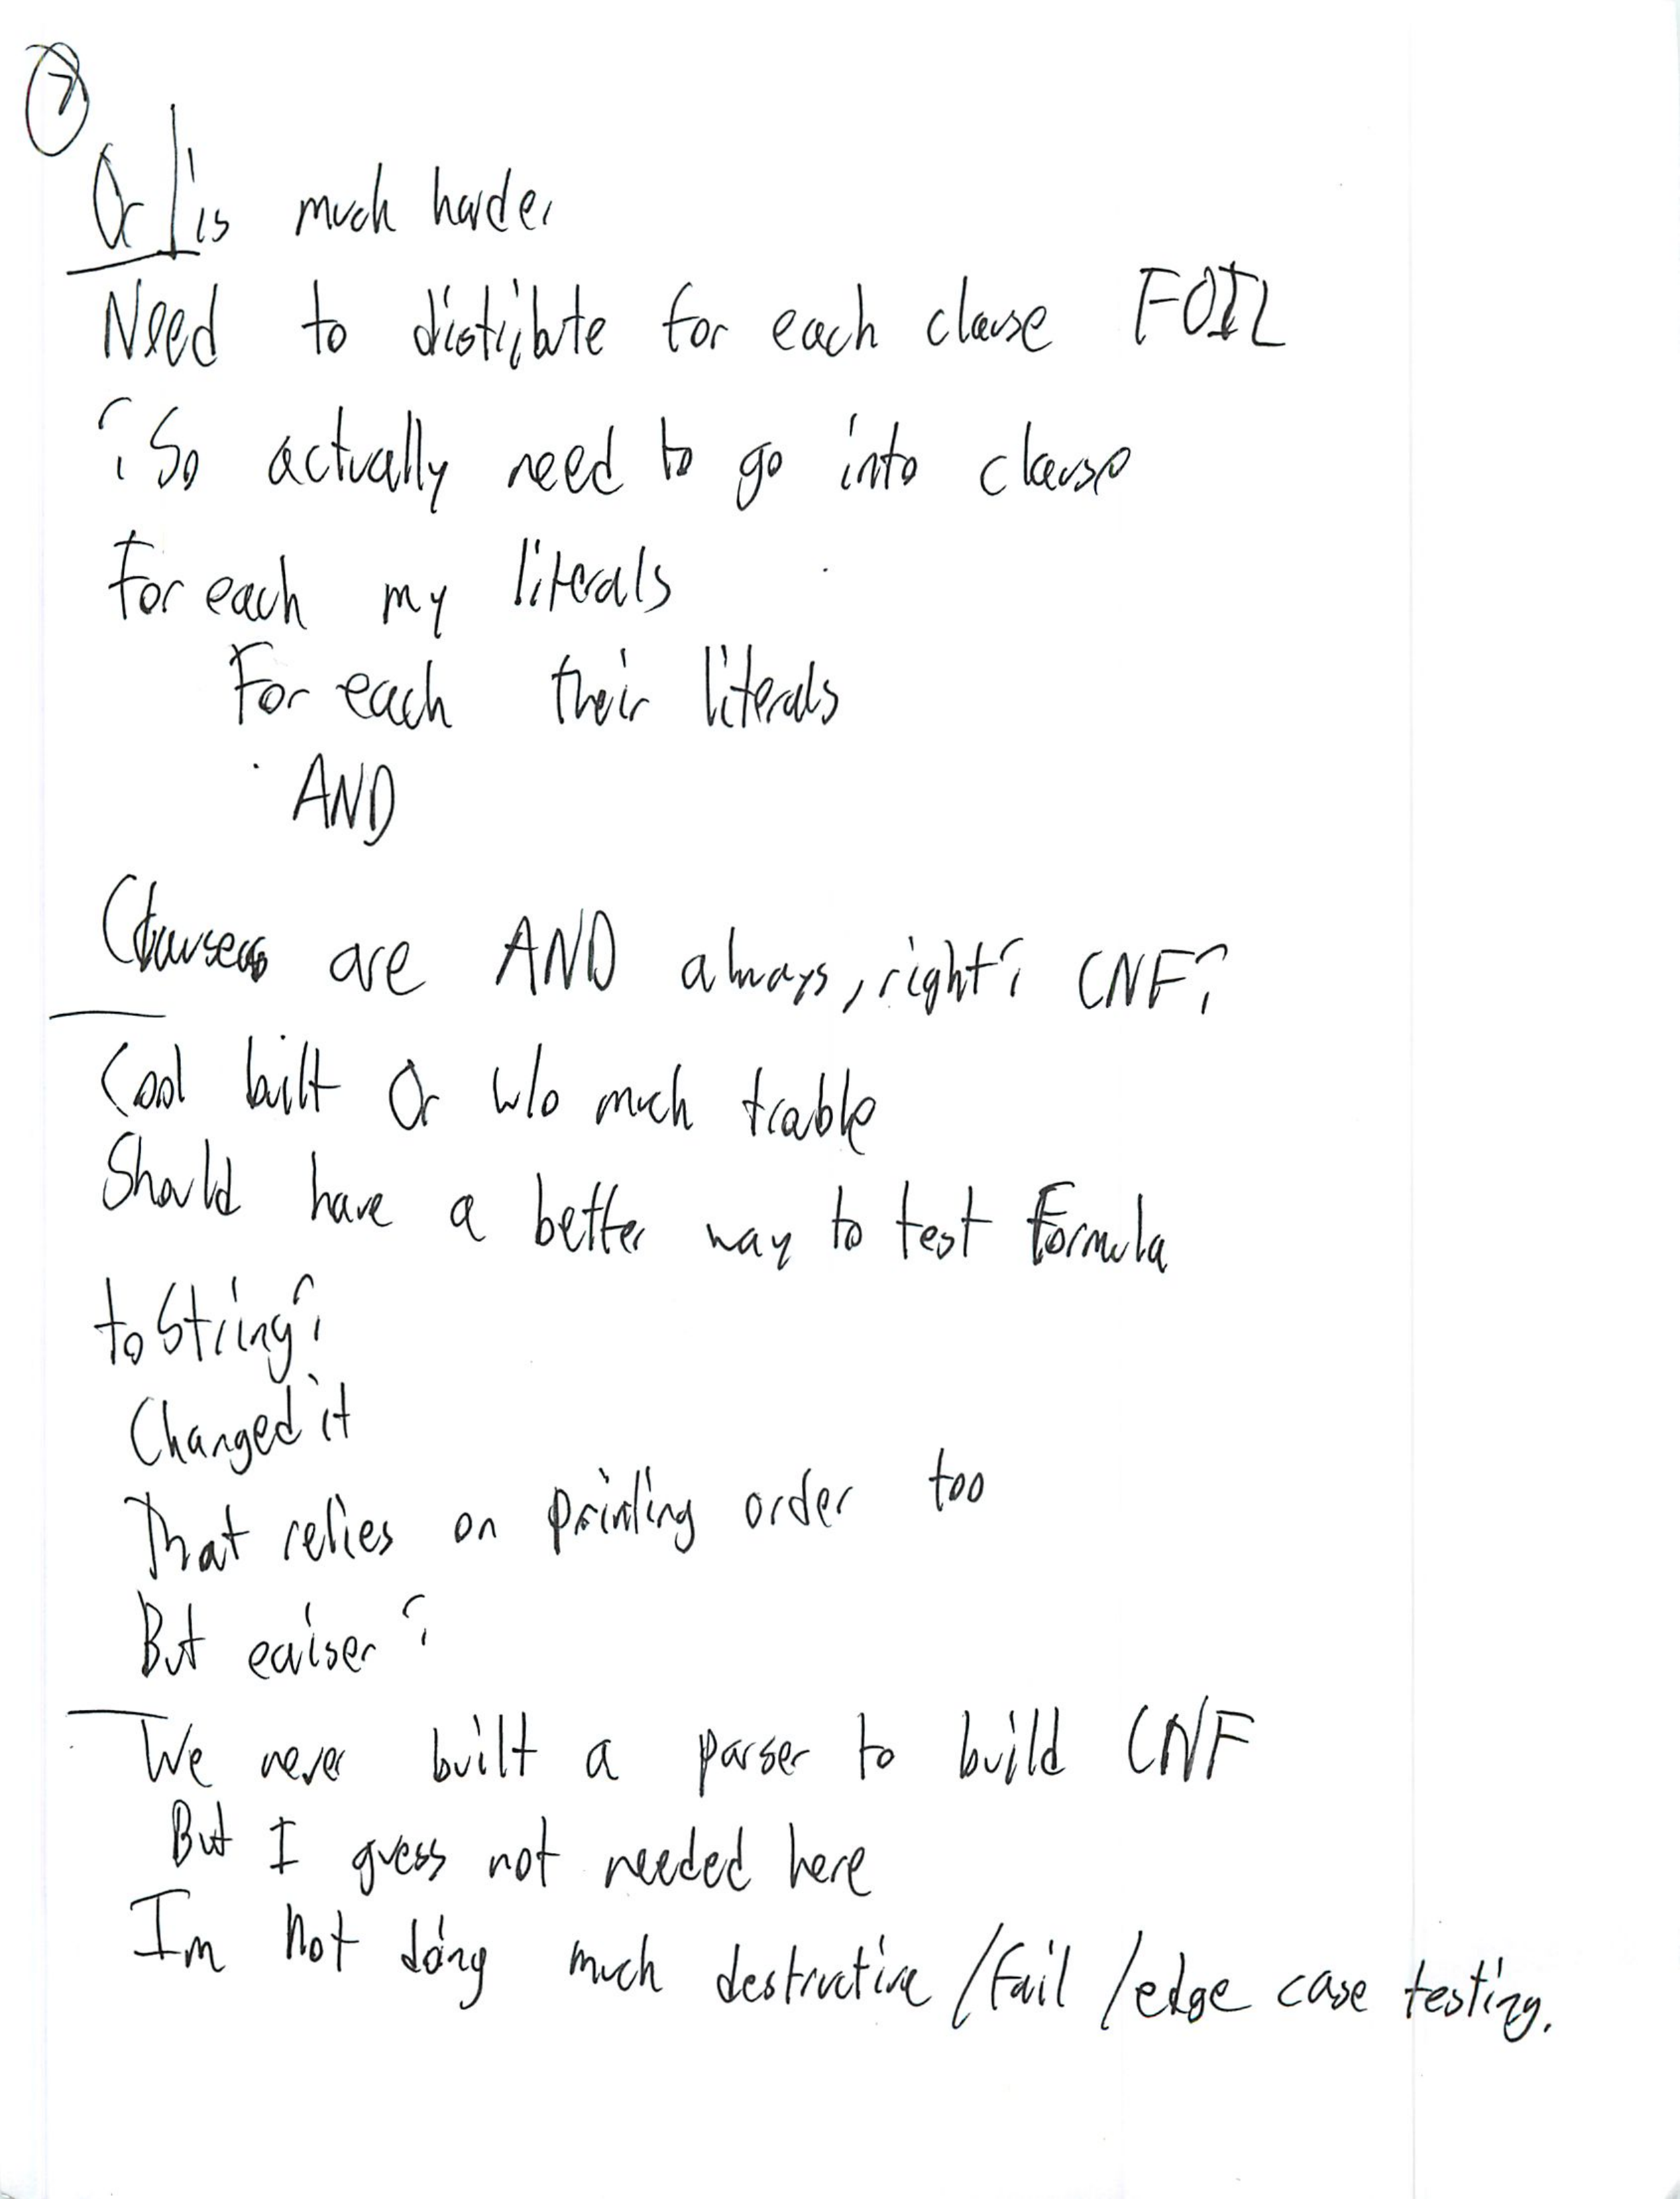 7
Or is much harder
Need to distribute for each clause FOIL
? So actually need to go into clause
For each my literals
For each their literals
AND
Clauses are AND always, right? CNF?
Cool built Or w/o much trouble
Should have a better way to test Formula
toString?
Changed it
That relies on printing order too
But eaiser?
We never built a parser to build CNF
But I guess not needed here
Im not doing much destructive / fail / edge case testing.